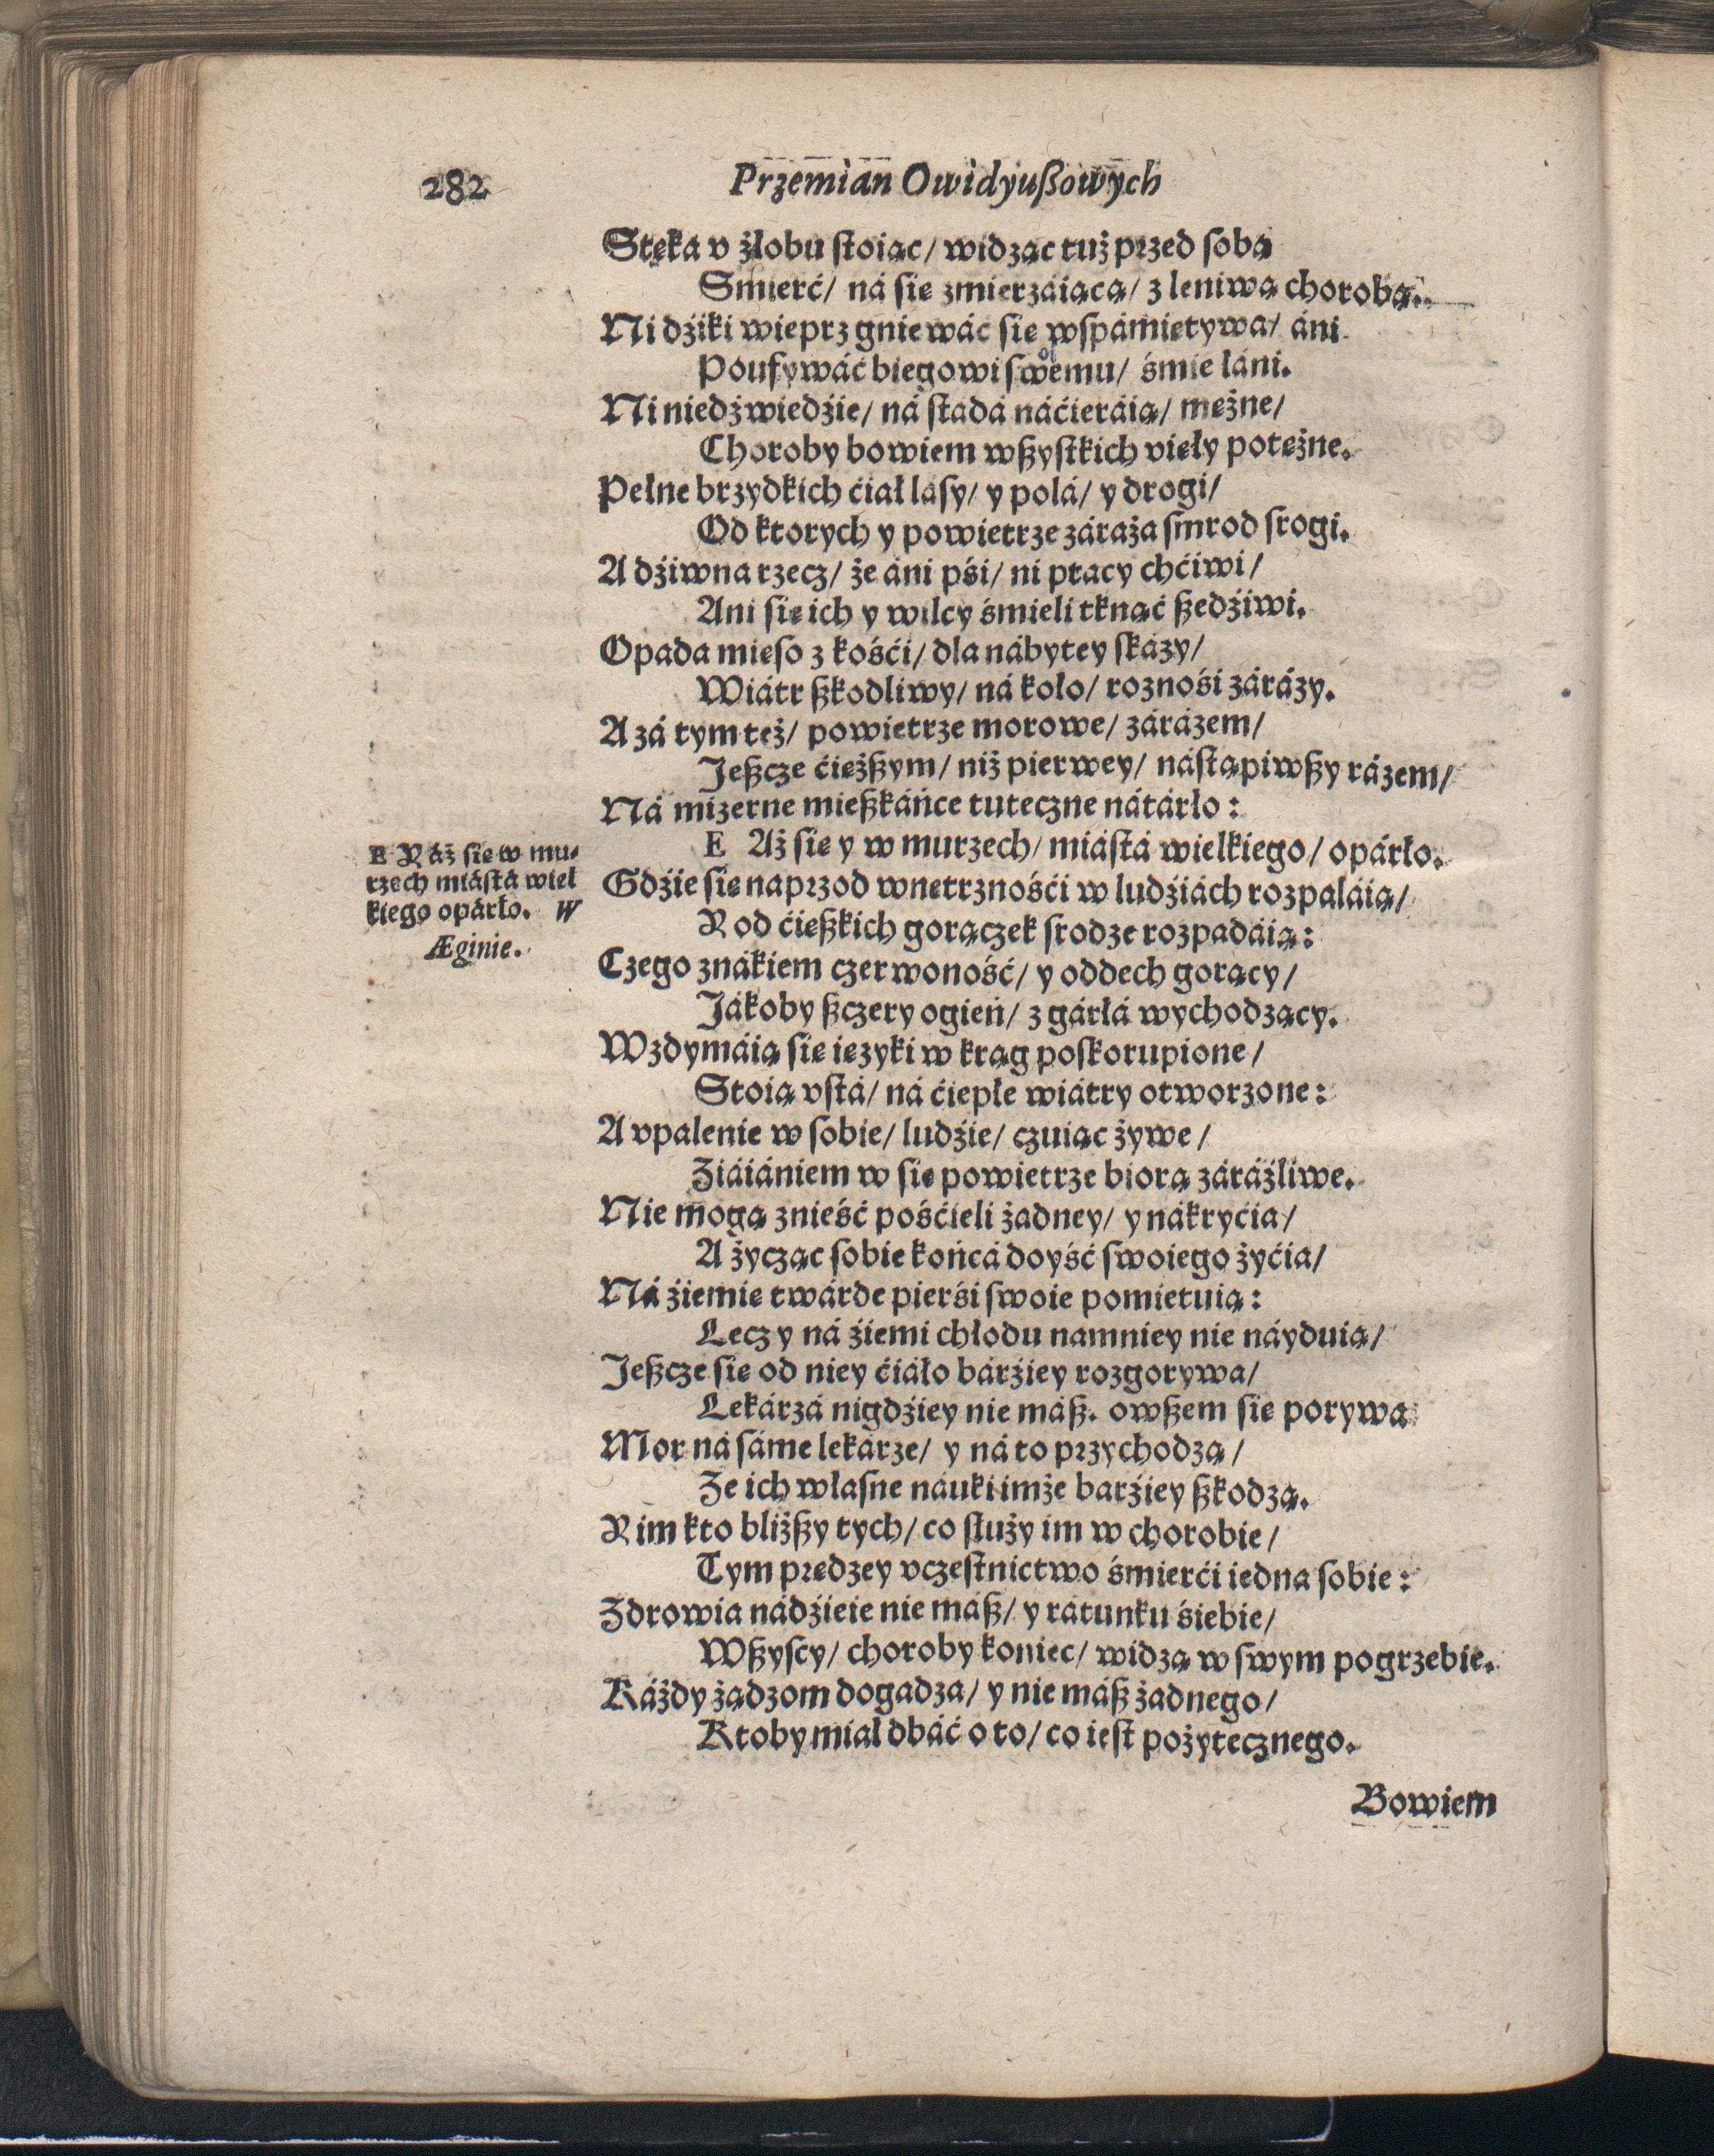 282
Przemian Owidyußowych
Stęka v żłobu stoiąc/ widząc tuż przed sobą
Smierć/ ná się zmierzáiącą/ z leniwą chorobą.
Ni dźiki wieprz gniewáć się wspámiętywa/ áni
Poufywáć biegowi swemu/ śmie łáni.
Ni niedźwiedźie/ ná stadá náćieráią/ mężne/
Choroby bowiem wßystkich vięły potężne.
Pełne brzydkich ćiał lasy/ y polá/ y drogi/
Od ktorych y powietrze záraża smrod srogi.
A dźiwna rzecz/ że áni pśi/ ni ptacy chćiwi/
Ani się ich y wilcy śmieli tknąć ßedźiwi.
Opada mięso z kośći/ dla nábytey skázy/
Wiátr ßkodliwy/ ná koło/ roznośi zárázy.
A zá tym też/ powietrze morowe/ zárázem/
Jeßcze ćięższym/ niż pierwey/ nástąpiwßy rázem/
Ná mizerne mießkáńce tuteczne nátárło:
E Aż się y w murzech/ miástá wielkiego/ opárło.
E Y áż się w mu-
rzech miástá wiel
kiego opárło. W
Æginie.
Gdźie się naprzod wnętrznośći w ludźiách rozpaláią/
Y od ćięßkich gorączek srodze rozpadáią:
Czego znákiem czerwoność/ y oddech gorący/
Jákoby ßczery ogień/ z gárłá wychodzący.
Wzdymáią się ięzyki w krąg poskorupione/
Stoią vstá/ ná ćiepłe wiátry otworzone:
A vpalenie w sobie/ ludźie/ czuiąc żywe/
Ziáiániem w się powietrze biorą záráźliwe.
Nie mogą znieść pośćieli żadney/ y nákryćia/
A życząc sobie końcá doyść swoiego żyćia/
Ná źiemię twárde pierśi swoie pomiętuią:
Lecz y ná źiemi chłodu namniey nie náyduią/
Jeßcze się od niey ćiáło bárźiey rozgorywa/
Lekárzá nigdźiey nie máß. owßem się porywa
Mor ná sáme lekárze/ y ná to przychodzą/
Ze ich własne náuki imże barźiey ßkodzą.
Y im kto bliżßy tych/ co służy im w chorobie/
Tym prędzey vczestnictwo śmierći iedna sobie:
Zdrowia nádźieie nie máß/ y rátunku śiebie/
Wßyscy/ choroby koniec/ widzą w swym pogrzebie.
Káżdy żądzom dogadza/ y nie máß żadnego/
Ktoby miał dbáć o to/ co iest pożytecznego.
Bowiem